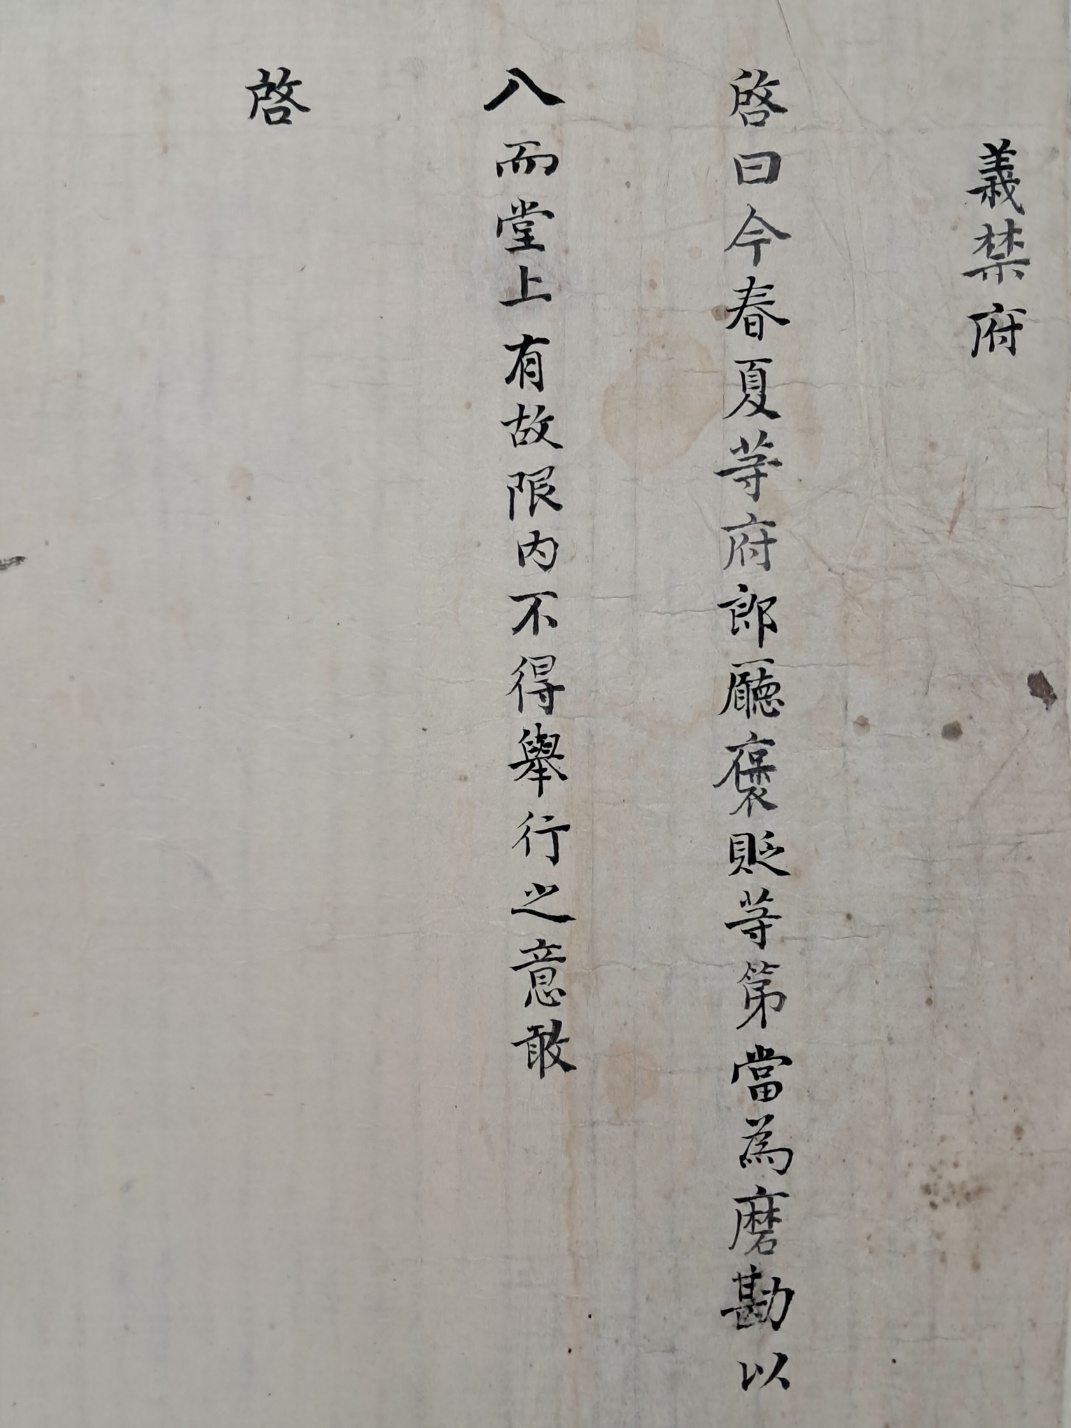 義禁府
啓曰今春夏等府郎廳褒貶等第當為磨勘以
入而堂上有故限內不得舉行之意敢
啓